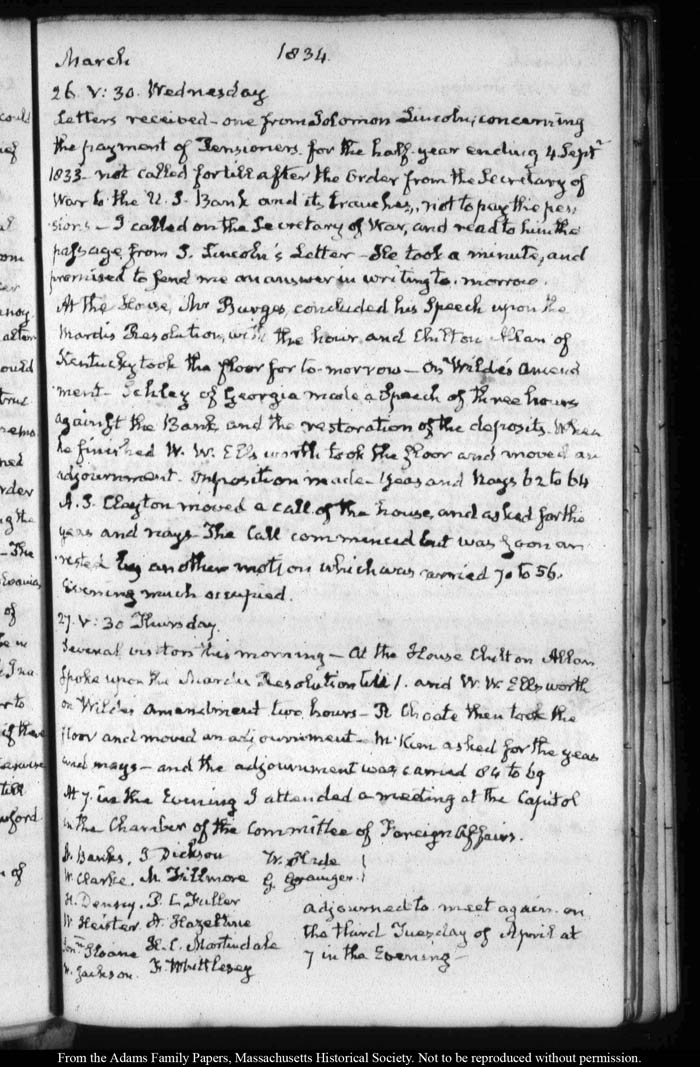 March 1834.
26. V: 30. Wednesday
Letters received – one from Solomon Lincoln, concerning
the payment of Pensioners for the half-year ending 4 Septr
1833 – not called for till after the Order from the Secretary of
War to the U. S. Bank and its branches, not to pay the pen
sions – I called on the Secretary of War, and read to him the
passage from S. Lincoln's Letter – He took a minute, and
promised to send me an answer in writing to-morrow.
At the House, Mr Burges, concluded his Speech upon the
Mardis Resolution, with the hour and Chilton Allan of
Kentucky took the floor for to-morrow – On Wilde's amend
ment – Schley of Georgia made a Speech of three hours
against the Bank, and the restoration of the deposits. When
he finished W. W. Ellsworth took the floor and moved an
adjournment. Opposition made – Yeas and Nays 62 to 64
A. S. Clayton moved a call of the house, and asked for the
yeas and nays – The Call commenced but was soon ar
rested by another motion which was carried 70 to 56.
Evening much occupied.
27. V: 30 Thursday.
Several visitors this morning – At the House Chilton Allan
Spoke upon the Mardis Resolution till 1. and W. W. Ellsworth
on Wildes amendment two hours – R. Choate then took the
floor and moved an adjournment – McKim asked for the yeas
and nays – and the adjournment was carried 84 to 69
At 7. in the Evening I attended a meeting at the Capitol
in the Chamber of the Committee of Foreign Affairs.
Banks, J Dickson
W. Clarke, M. Fillmore G. Granger.
H. Denny, P. C. Fuller adjourned to meet again on
Heister A. Hazeltine the third Tuesday of April at
Jonn Sloane H. C. Martindale 7 in the Evening –
W. Jackson. F. Whittlesey
could
of
The
of
of
From the Adams Family Papers, Massachusetts Historical Society. Not to be reproduced without permission.